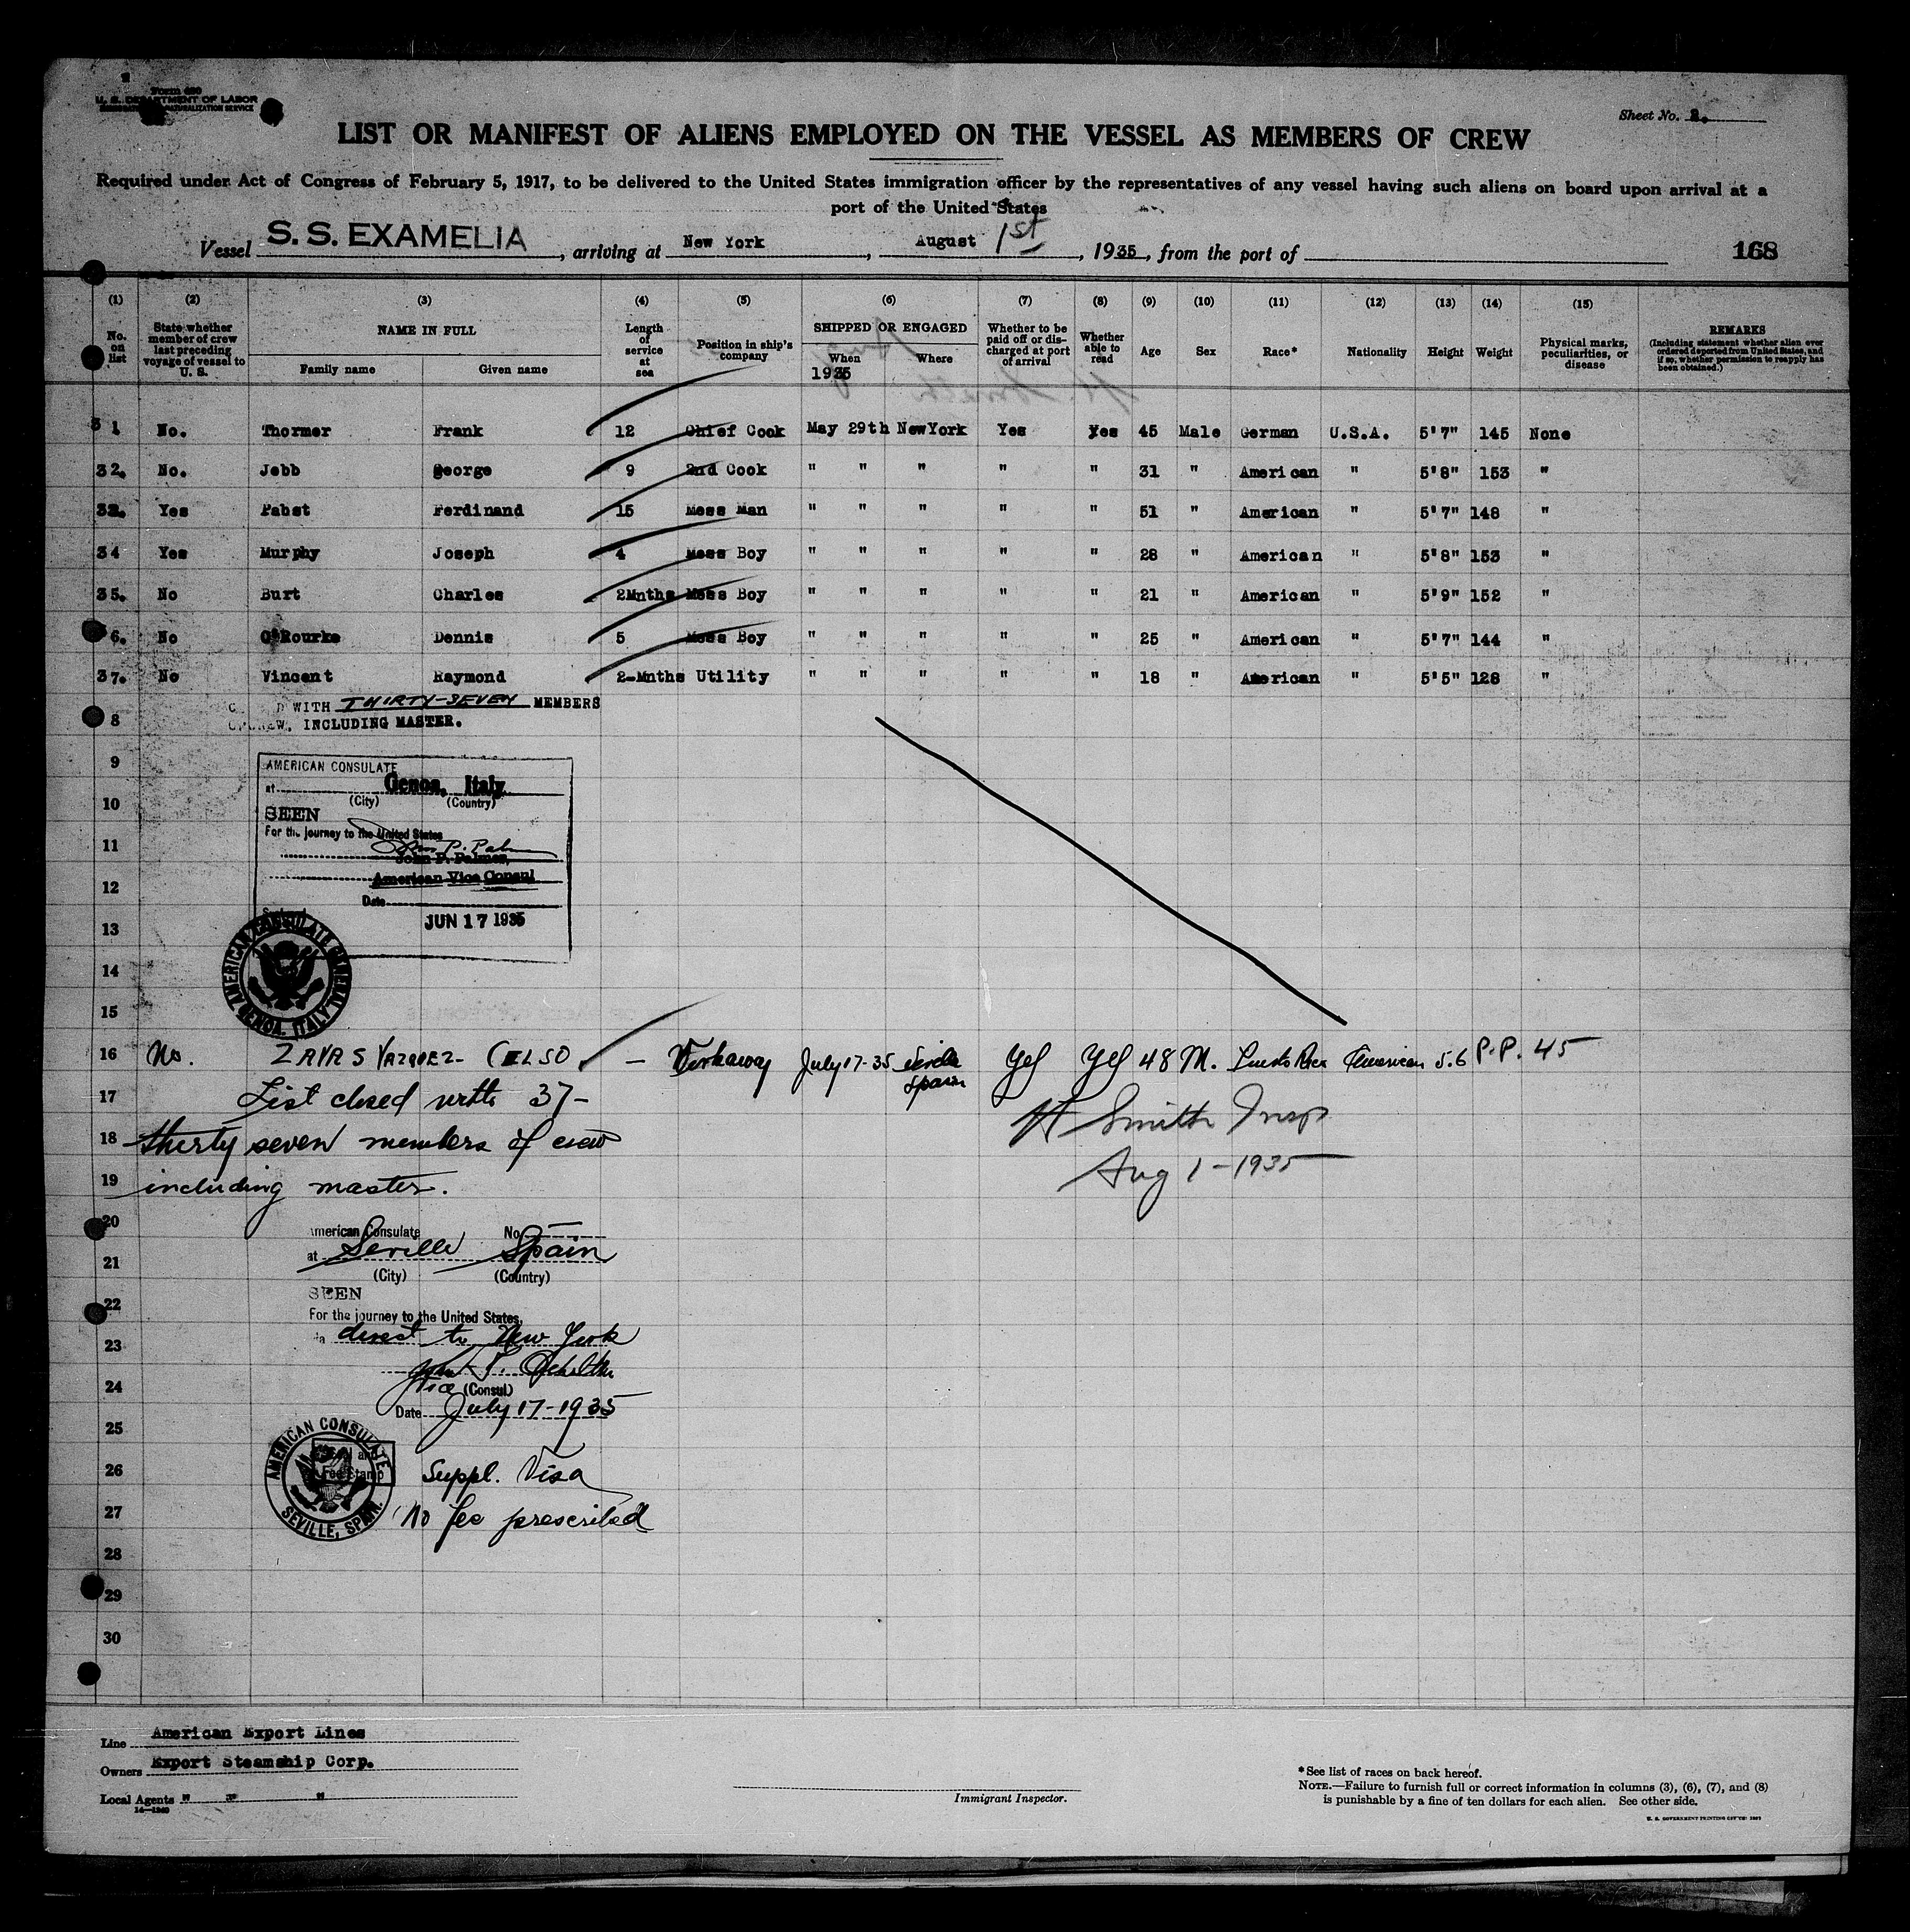 Form 680
U. S. DEPARTMENT OF LABOR
IMMIGRATION AND NATURALIZATION SERVICE
Sheet No. 2.
LIST OR MANIFEST OF ALIENS EMPLOYED ON THE VESSEL AS MEMBERS OF CREW
Required under Act of Congress of February 5, 1917, to be delivered to the United States immigration officer by the representatives of any vessel having such aliens on board upon arrival at a
port of the United States
Vessel S. S. EXAMELIA, arriving at New York, August 1st, 1935, from the port of
168
(1) (2) (3) (4) (5) (6) (7) (8) (9) (10) (11) (12) (13) (14) (15)
No. on list
State whether member of crew last preceding voyage of vessel to U. S.
NAME IN FULL
Family name Given name
Length of service at sea
Position in ship's company
SHIPPED OR ENGAGED
When Where
1935
Whether to be paid off or discharged at port of arrival
Whether able to read
Age
Sex
Race*
Nationality
Height
Weight
Physical marks, peculiarities, or disease
REMARKS
(Including statement whether alien ever ordered deported from United States, and if so, whether permission to reapply has been obtained.)
3 1 No. Thormer Frank 12 Chief Cook May 29th NewYork Yes Yes 45 Male German U.S.A. 5'7" 145 None
32. No. Jebb George 9 2nd Cook " " " " " 31 " American " 5'8" 153 "
33. Yes Pabst Ferdinand 15 Mess Man " " " " " 51 " American " 5'7" 148 "
34 Yes Murphy Joseph 4 Mess Boy " " " " " 28 " American " 5'8" 153 "
35. No Burt Charles 2Mnths Mess Boy " " " " " 21 " American " 5'9" 152 "
36. No O'Rourke Dennis 5 Mess Boy " " " " " 25 " American " 5'7" 144 "
37. No Vincent Raymond 2-Mnths Utility " " " " " 18 " American " 5'5" 128 "
WITH THIRTY-SEVEN MEMBERS
8 CREW, INCLUDING MASTER.
9
AMERICAN CONSULATE
at Genoa, Italy
10
(City) (Country)
SEEN
For the journey to the United States
11
John P. Palmer,
American Vice Consul
12
Date
JUN 17 1935
13
AMERICAN CONSULATE GENERAL
GENOA, ITALY
14
15
16 No. ZAYAS VAZQUEZ- CELSO — Workaway July 17-35 Seville Spain Yes Yes 48 M. Puerto Rico American 5.6 P.P. 45
17 List closed with 37-
H Smith Insp
18 thirty seven members of crew
Aug 1-1935
19 including master.
20
American Consulate No
at Seville Spain
21
(City) (Country)
SEEN
22
For the journey to the United States,
direct to New York
23
24
Vice (Consul)
Date July 17-1935
25
AMERICAN CONSULATE
SEVILLE, SPAIN.
Fee Stamp
26 Suppl. Visa
27 No fee prescribed
28
29
30
Line American Export Lines
Owners Export Steamship Corp.
Local Agents " " "
14—1240
Immigrant Inspector.
*See list of races on back hereof.
NOTE.—Failure to furnish full or correct information in columns (3), (6), (7), and (8)
is punishable by a fine of ten dollars for each alien. See other side.